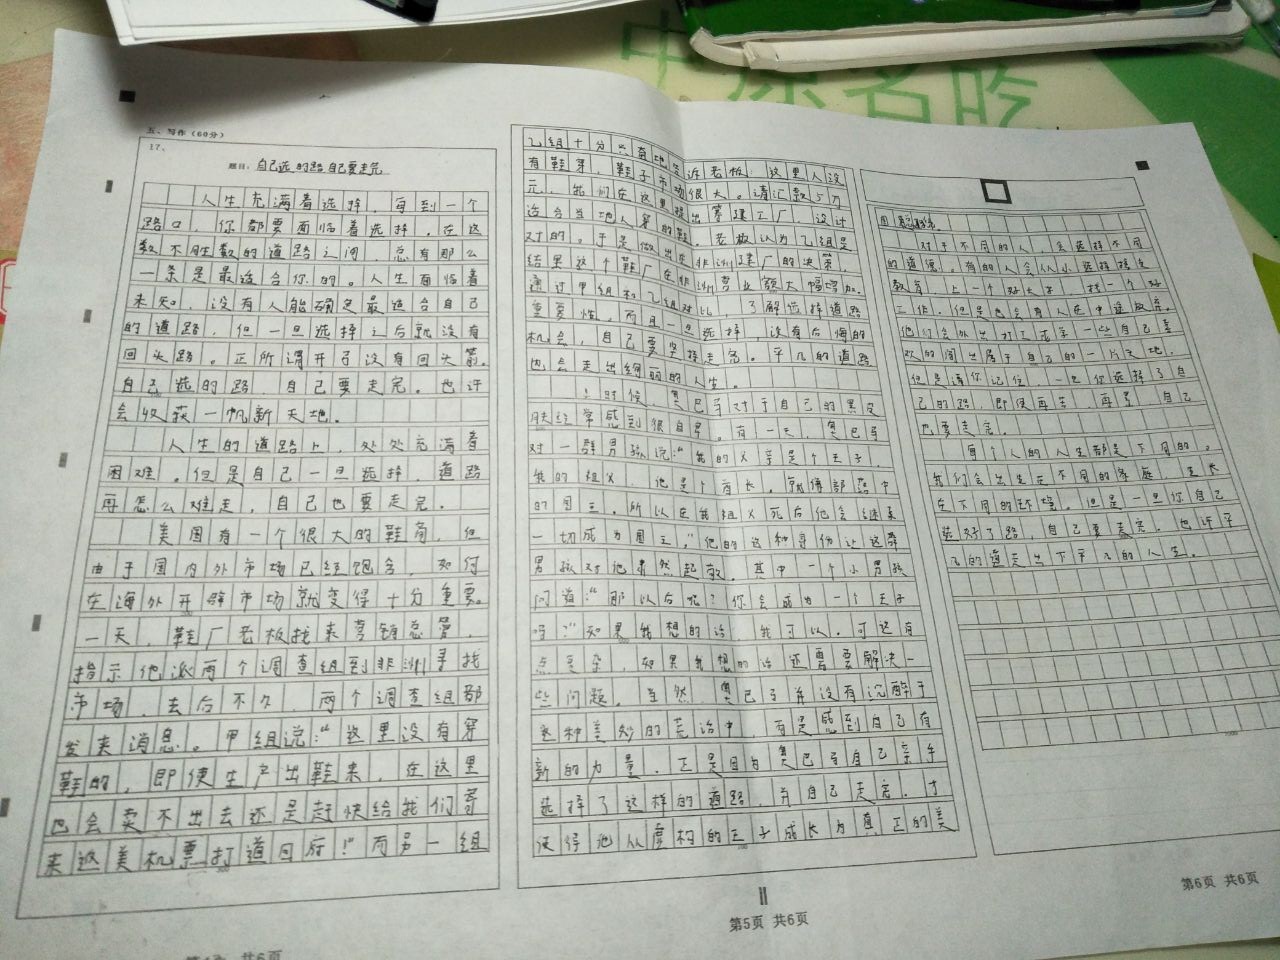 中原名吃
五、写作（60分）
17、
题目：自己选的路自己要走完
人生充满着选择，每到一个
路口，你都要面临着选择，在这
数不胜数的道路之间，总有那么
一条是最适合你的。人生面临着
未知，没有人能确定最适合自己
的道路，但一旦选择之后就没有
回头路。正所谓开弓没有回头箭。
自己选的路，自己要走完。也许
会收获一帆新天地。
人生的道路上，处处充满着
困难。但是自己一旦选择，道路
再怎么难走，自己也要走完。
美国有一个很大的鞋商，但
由于国内外市场已经饱含，如何
在海外开辟市场就变得十分重要。
一天，鞋厂老板找来营销总管，
指示他派两个调查组到非洲寻找
市场，去后不久，两个调查组都
发来消息。甲组说：“这里没有穿
鞋的，即便生产出鞋来，在这里
也会卖不出去还是赶快给我们寄
来返美机票打道回府！”而另一组
乙组十分兴奋地告诉老板，这里人没
有鞋穿，鞋子市场很大。请汇款5万
元，我们在这里筹建工厂，设计
适合当地人穿的鞋。老板认为乙组是
对的。于是做出在非洲建厂的决策，
结果这个鞋厂在非洲营业额大幅增加。
通过甲组和乙组对比，了解选择道路
重要性，而且一旦选择，没有后悔的
机会，自己要坚持走完。平凡的道路
也会走出绚丽的人生。
小时候，奥巴马对于自己的黑皮
肤经常感到很自卑。有一天，奥巴马
对一群男孩说：“我的父亲是个王子，
我的祖父，他是个酋长。就像部落中
的国王。所以在我祖父死后他会继承
一切成为国王。”他的这种身份让这群
男孩对他肃然起敬。其中一个小男孩
问道：“那以后呢？你会成为一个王子
吗？”“如果我想的话，我可以。可这有
点复杂，如果我想的话还需要解决一
些问题。当然，奥巴马并没有沉醉于
这种美妙的谎话中，而是感到自己有
新的力量。正是因为奥巴马自己亲手
选择了这样的道路，并自己走完。才
使得他从虚构的王子成长为真正的美
国总统。
对于不同的人，会选择不同
的道德。有的人会从小选择接受
教育，上一个好大学，找一个好
工作。但是也会有人在中途放弃。
他们会外出打工或学一些自己喜
欢的闯出属于自己的一片天地。
但是请你记住，一旦你选择了自
己的路，即使再苦，再累，自己
也要走完。
每个人的人生都是不同的。
我们会出生在不同的家庭，生长
在不同的环境。但是一旦你自己
选好了路，自己要走完。也许平
凡的道走出不平凡的人生。
第5页 共6页
第6页 共6页
共6页